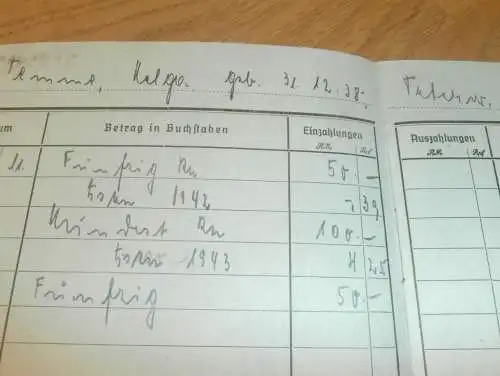 Temme, Helga. geb. 31.12.38.
um Betrag in Buchstaben Einzahlungen Auszahlungen
RM. Rpf RM. Rpf
11. Fünfzig RM 50.–
1942 39
Hundert RM 100.–
1943 4 25
Fünfzig 50.–